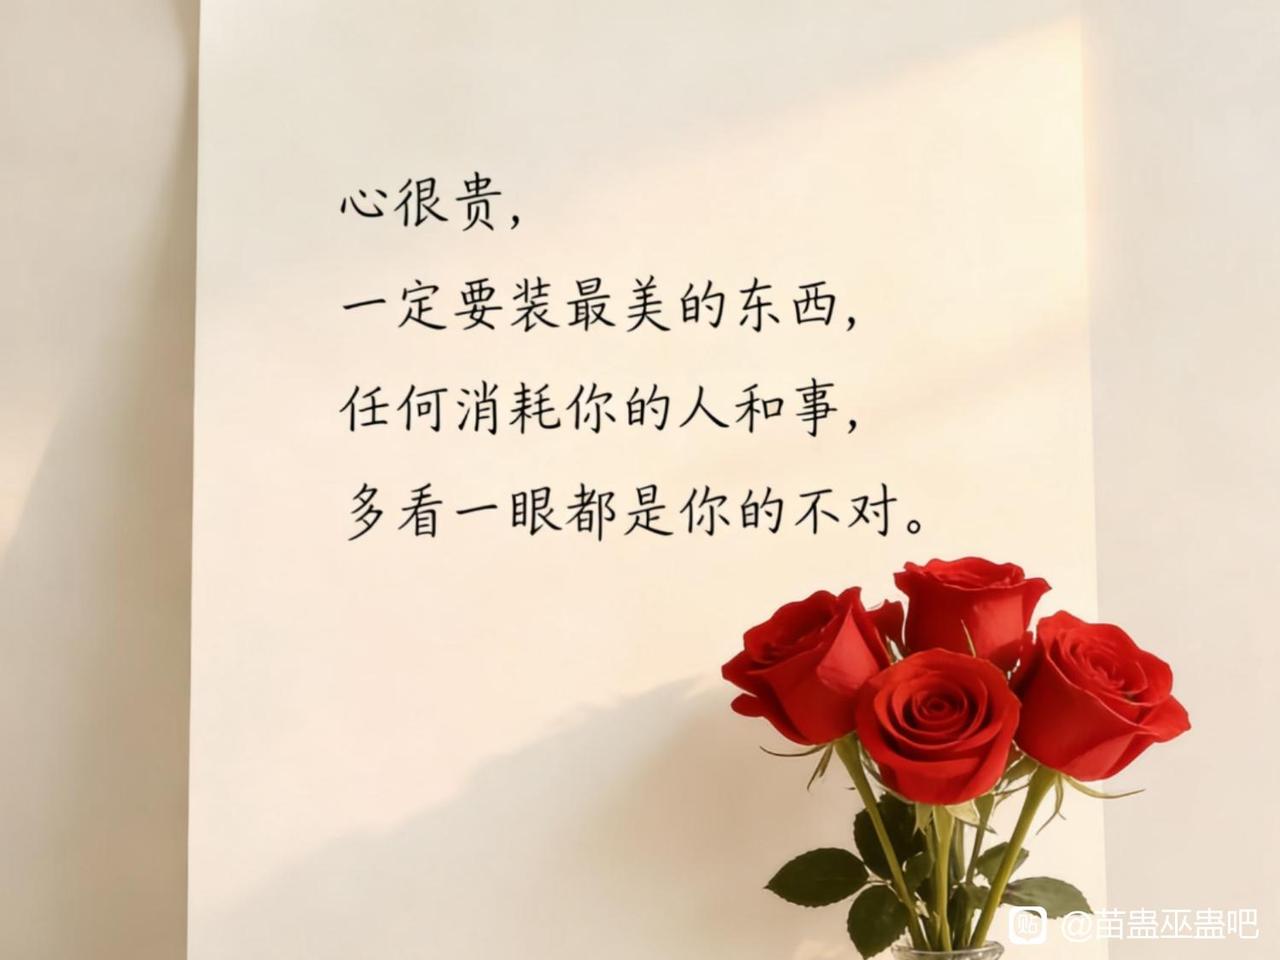 心很贵，
一定要装最美的东西，
任何消耗你的人和事，
多看一眼都是你的不对。
贴 @苗蛊巫蛊吧